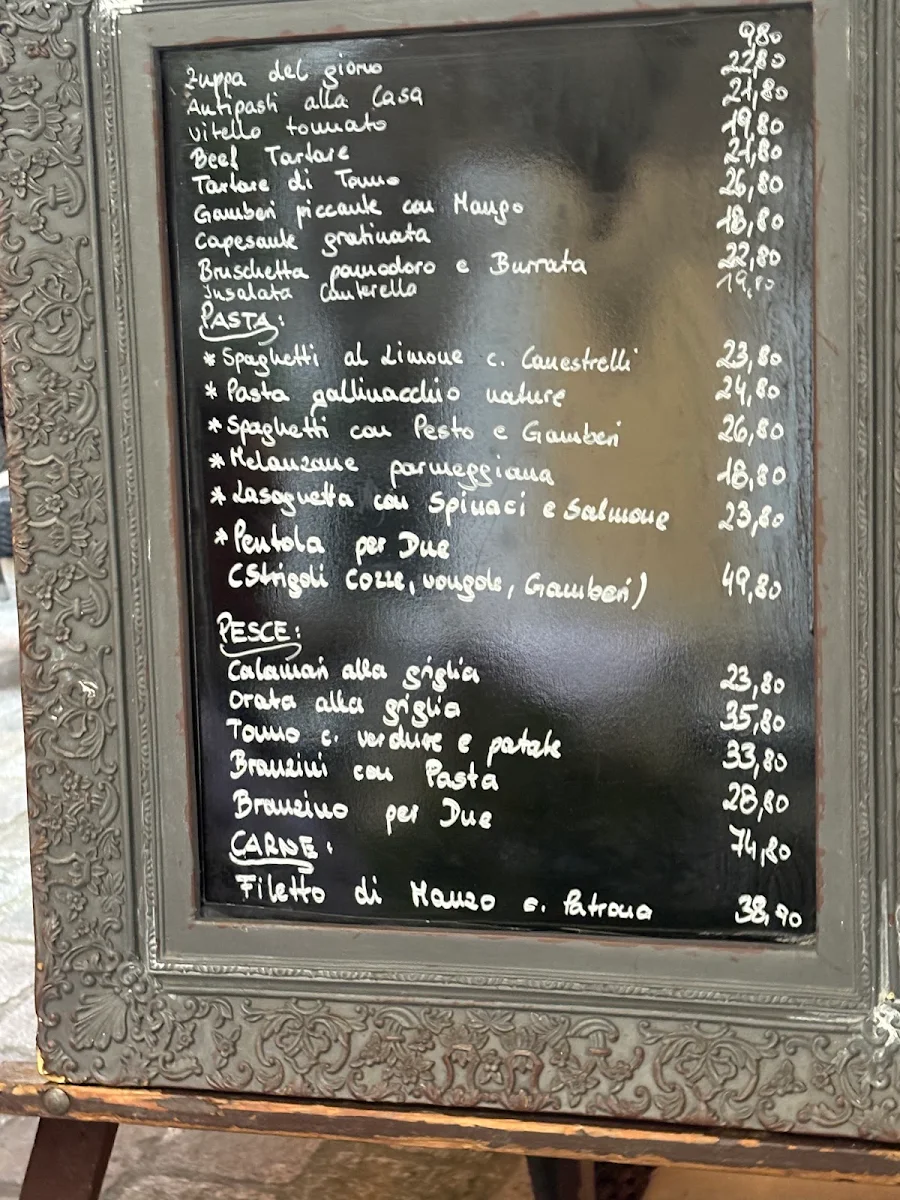 Zuppa del giorno 9,80
Antipasti alla Casa 22,80
Vitello tonnato 21,80
Beef Tartare 19,80
Tartare di Tonno 21,80
Gamberi piccante con Mango 26,80
Capesante gratinata 18,80
Bruschetta pomodoro e Burrata 22,80
Insalata Canterella 19,80
PASTA:
* Spaghetti al Limone c. Canestrelli 23,80
* Pasta gallinacchio nature 24,80
* Spaghetti con Pesto e Gamberi 26,80
* Melanzane parmeggiana 18,80
* Lasagnetta con Spinaci e Salmone 23,80
* Pentola per Due
(Strigoli Cozze, vongole, Gamberi) 49,80
PESCE:
Calamari alla griglia 23,80
Orata alla griglia 35,80
Tonno c. verdure e patate 33,80
Branzini con Pasta 28,80
Branzino per Due 74,80
CARNE:
Filetto di Manzo c. Patrona 38,90